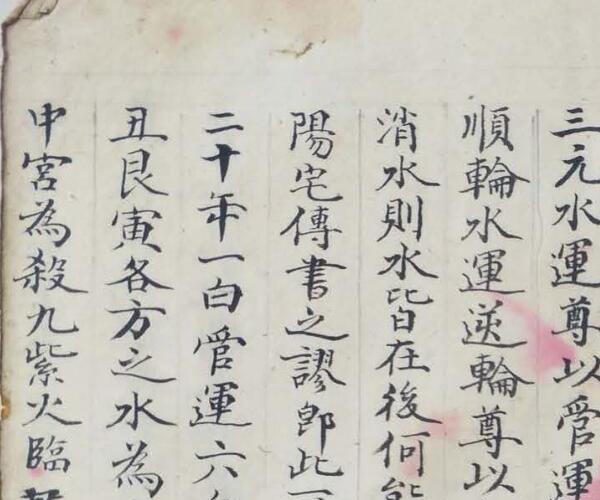 三元水運尊以管運
順輪水運逆輪尊以
消水則水皆在後何能
陽宅傳書之謬即此
二十年一白管運六
丑艮寅各方之水為
中宮為殺九紫火臨